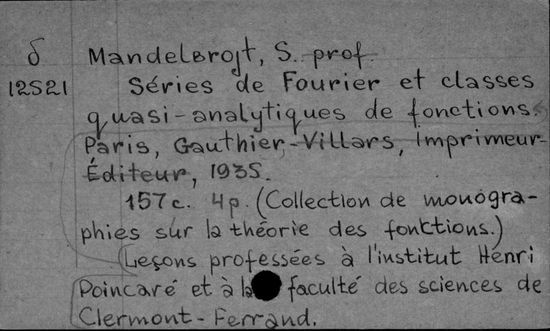 δ Mandelbrojt, S. prof.
12521 Séries de Fourier et classes
quasi-analytiques de fonctions.
Paris, Gauthier-Villars, imprimeur-
Éditeur, 1935.
157 c. 4p. (Collection de monogra-
phies sur la théorie des fonktions.)
(Leşons professées à l'institut Henri
Poincaré et à la faculté des sciences de
Clermont-Ferrand.